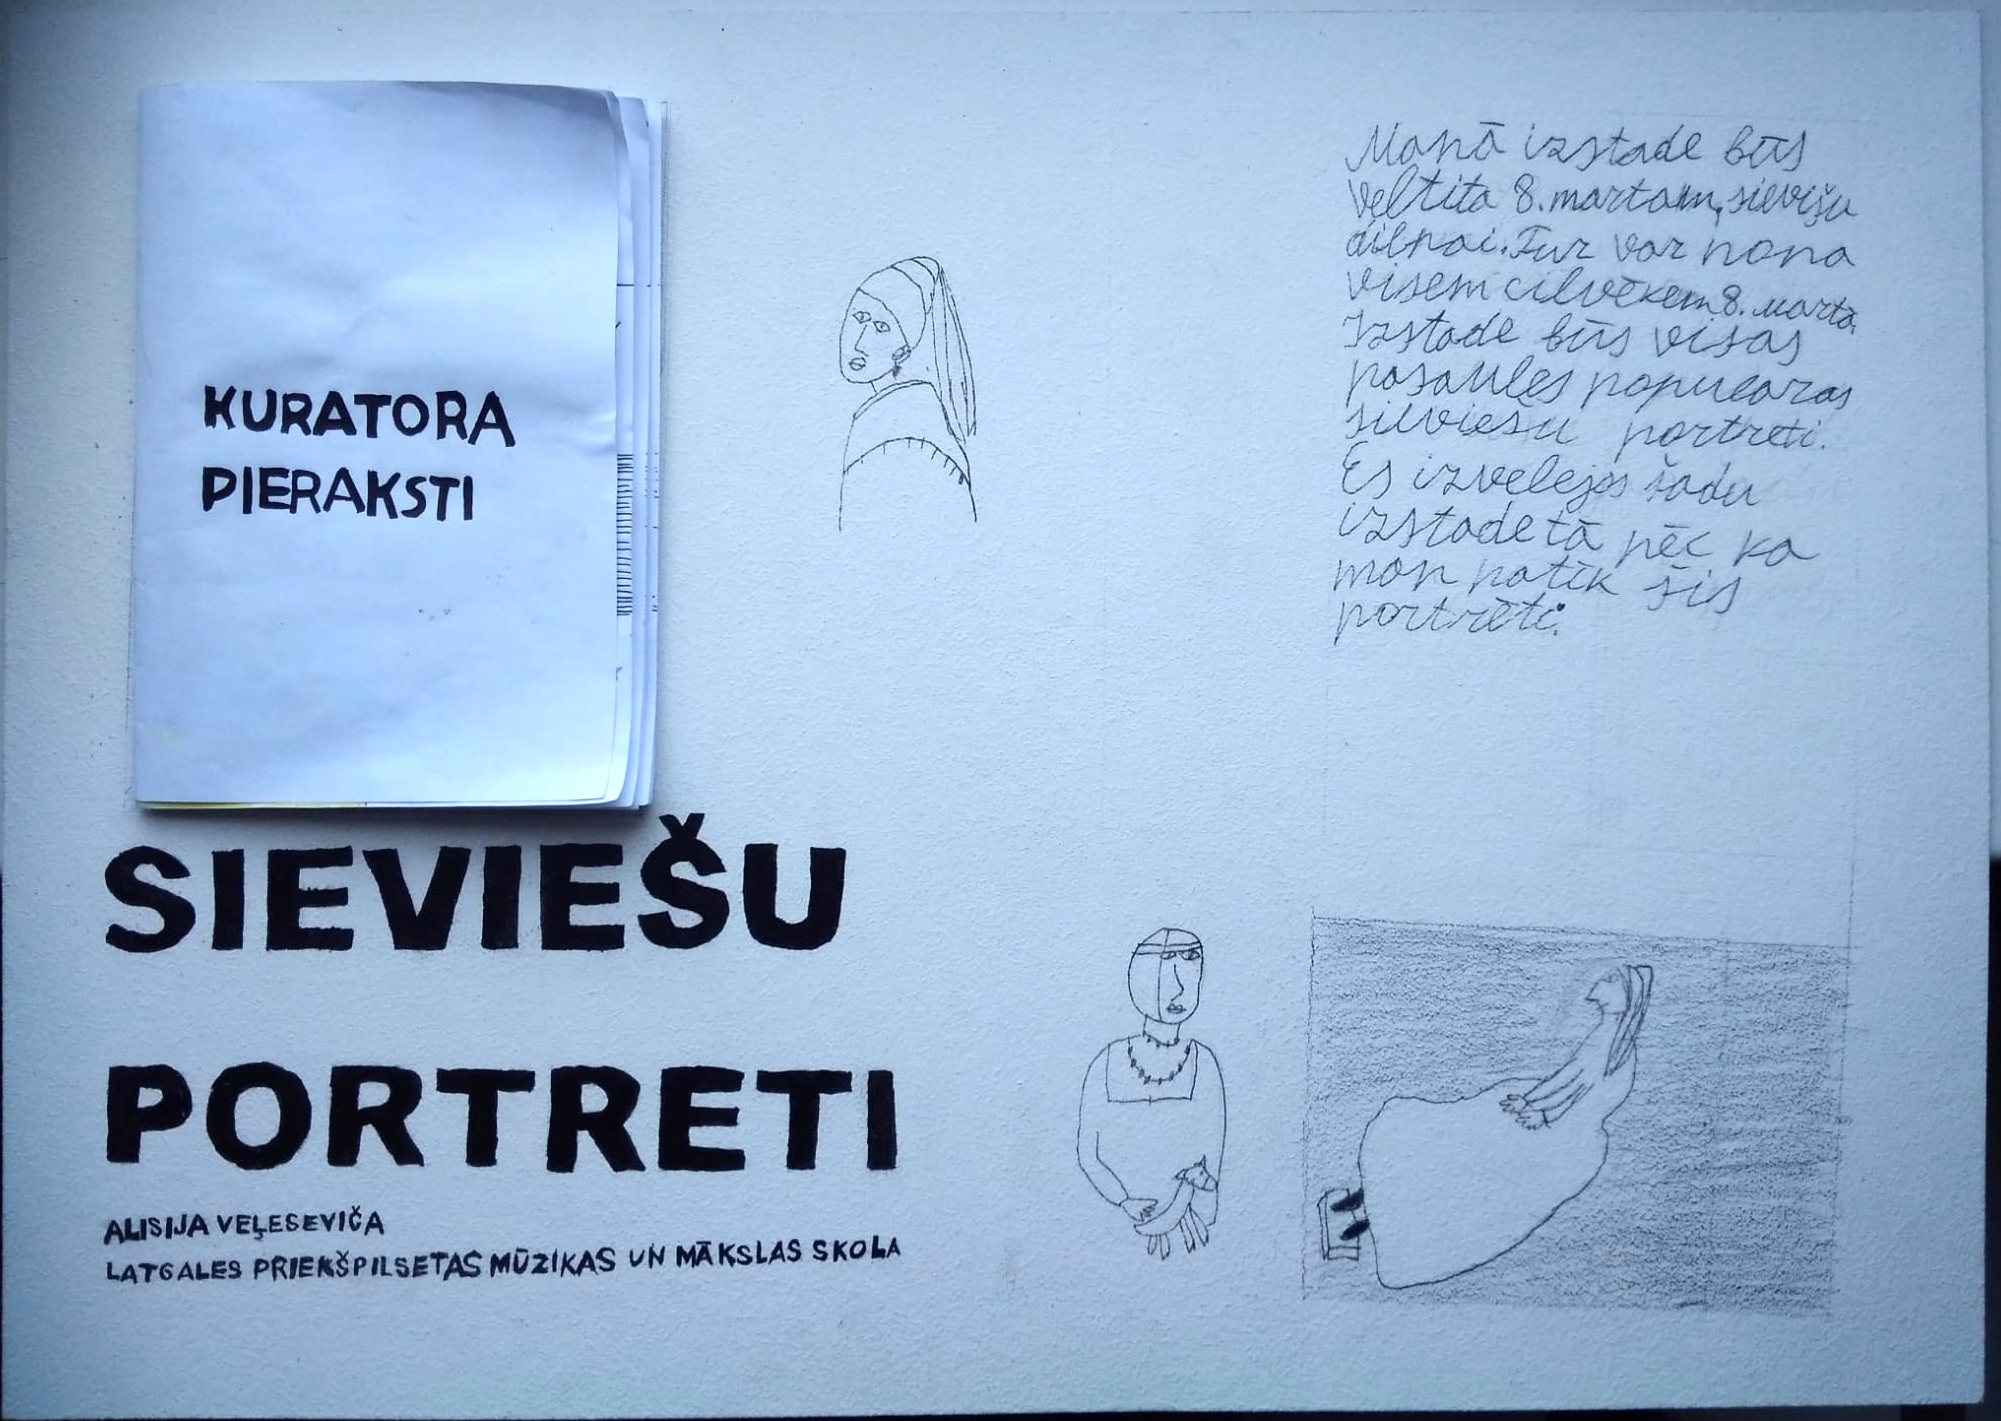 KURATORA
PIERAKSTI
Manā izstade būs
veltita 8. martam, sievišu
dienai. Tur var nona
visem cilvēkem 8. marta.
Izstade būs visas
pasaules popularas
sieviešu portreti.
Es izvelejos šadu
izstade tā pēc ka
man patīk šis
portrēti.
SIEVIEŠU
PORTRETI
ALISIJA VEĻESEVIČA
LATGALES PRIEKŠPILSETAS MŪZIKAS UN MĀKSLAS SKOLA